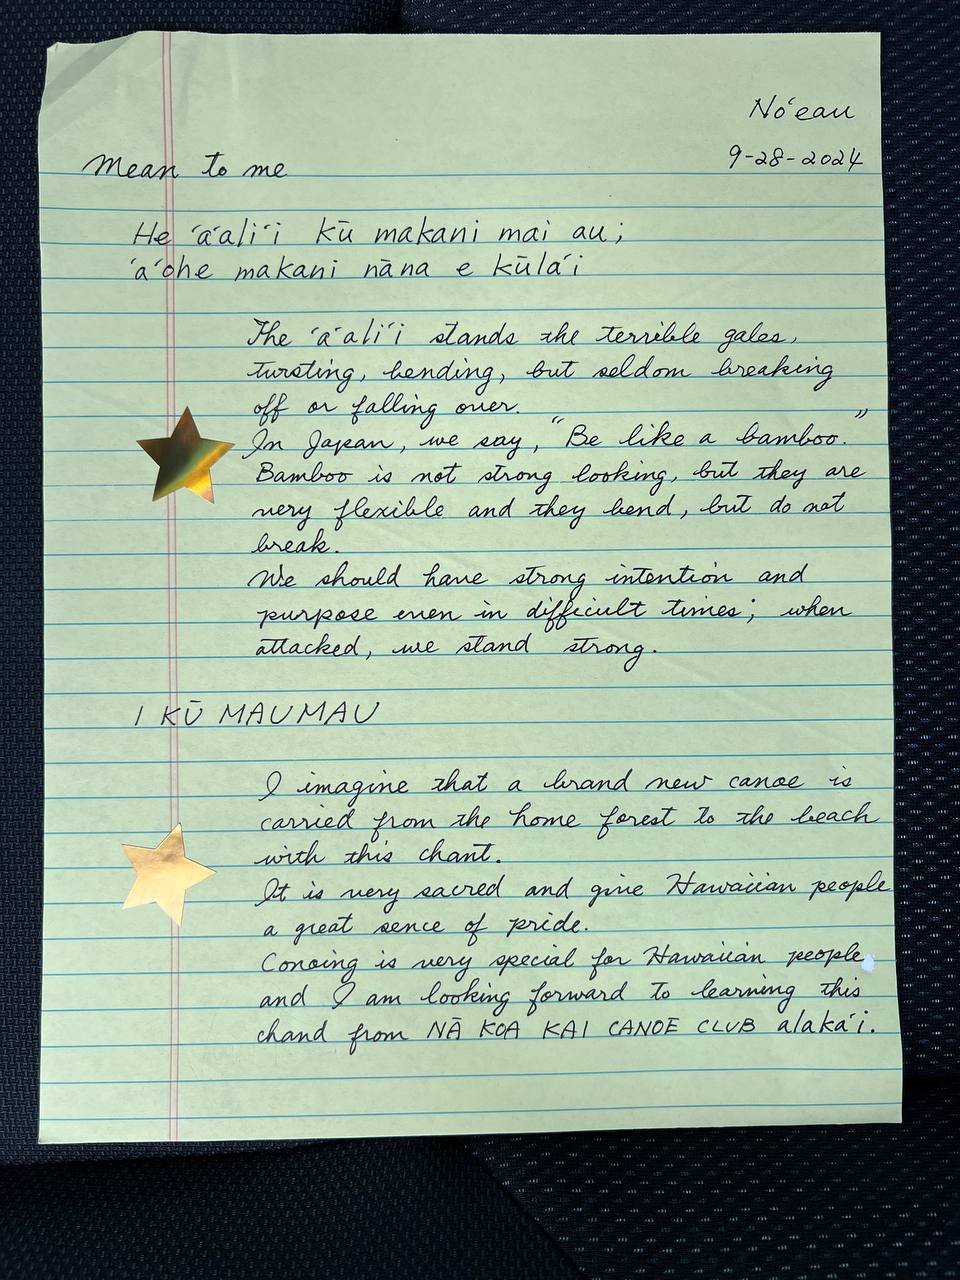 No'eau
9-28-2024
Mean to me
He 'a'ali'i kū makani mai au;
'a'ohe makani nāna e kūla'i
The 'a'ali'i stands the terrible gales,
tursting, bending, but seldom breaking
off or falling over.
In Japan, we say, "Be like a bamboo."
Bamboo is not strong looking, but they are
very flexible and they bend, but do not
break.
We should have strong intention and
purpose even in difficult times; when
attacked, we stand strong.
I KŪ MAUMAU
I imagine that a brand new canoe is
carried from the home forest to the beach
with this chant.
It is very sacred and give Hawaiian people
a great sence of pride.
Conoing is very special for Hawaiian people
and I am looking forward to learning this
chand from NĀ KOA KAI CANOE CLUB alaka'i.